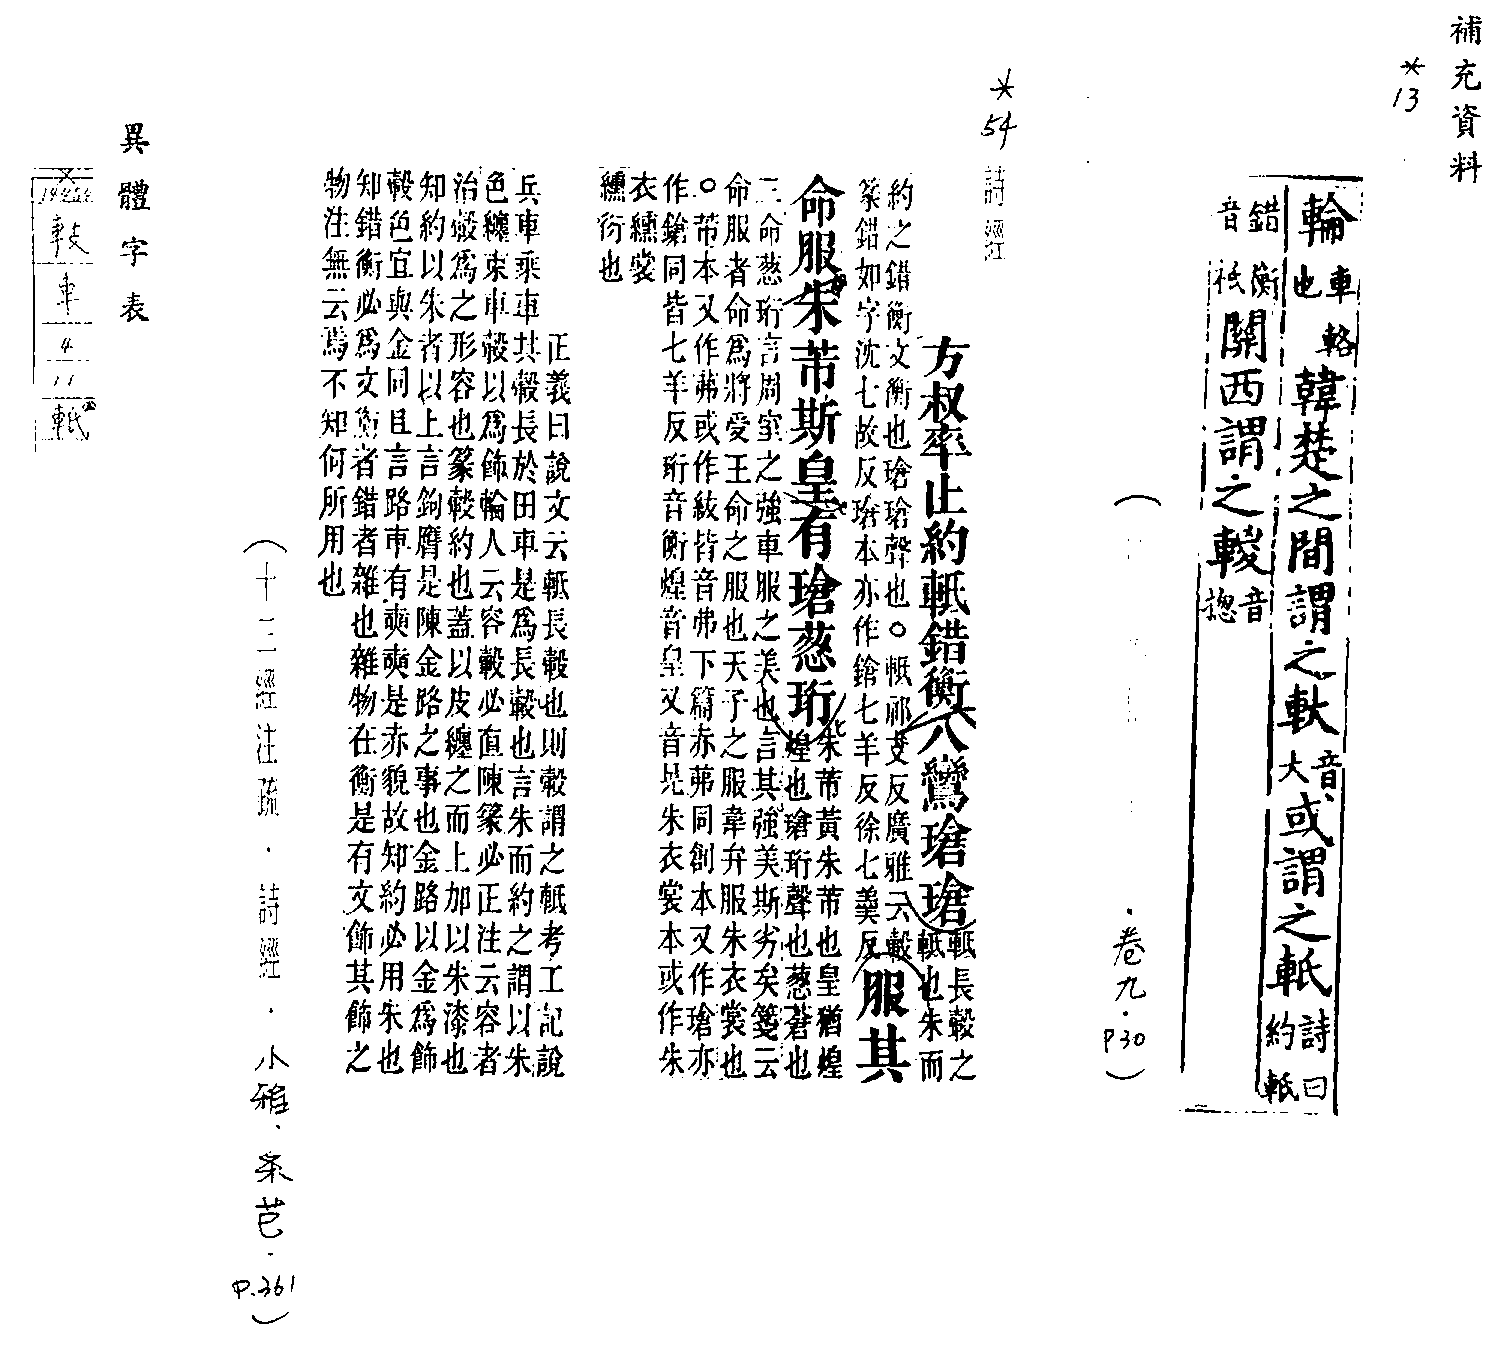 補充資料
*13
輪車也輅韓楚之間謂之軑音大或謂之軝詩曰約軝
錯衡音祇關西謂之䡯音揔
(卷九.P30)
*54
詩經
方叔率止約軝錯衡八鸞瑲瑲軝長轂之軝也朱而
約之錯衡文衡也瑲瑲聲也○軝祁支反廣雅云轂
篆錯如字沈七故反瑲本亦作鎗七羊反徐七羹反服其
命服朱芾斯皇有瑲葱珩朱芾黃朱芾也皇猶煌煌也瑲珩聲也葱蒼也
三命葱珩言周室之強車服之美也言其強美斯劣矣箋云
命服者命為將受王命之服也天子之服韋弁服朱衣裳也
○芾本又作茀或作紱皆音弗下篇赤茀同創本又作瑲亦
作鎗同皆七羊反珩音衡煌音皇又音晃朱衣裳本或作朱
衣纁裳
纁衍也
正義曰說文云軝長轂也則轂謂之軝考工記說
兵車乘車其轂長於田車是為長轂也言朱而約之謂以朱
色纏束車轂以為飾輪人云容轂必直陳篆必正注云容者
治轂為之形容也篆轂約也蓋以皮纏之而上加以朱漆也
知約以朱者以上言鉤膺是陳金路之事也金路以金為飾
轂色宜與金同且言路車有奭奭是赤貌故知約必用朱也
知錯衡必為文衡者錯者雜也雜物在衡是有文飾其飾之
物注無云焉不知何所用也
(十三經注疏.詩經.小雅.采芑.P.361)
異體字表
車
4
11
軝